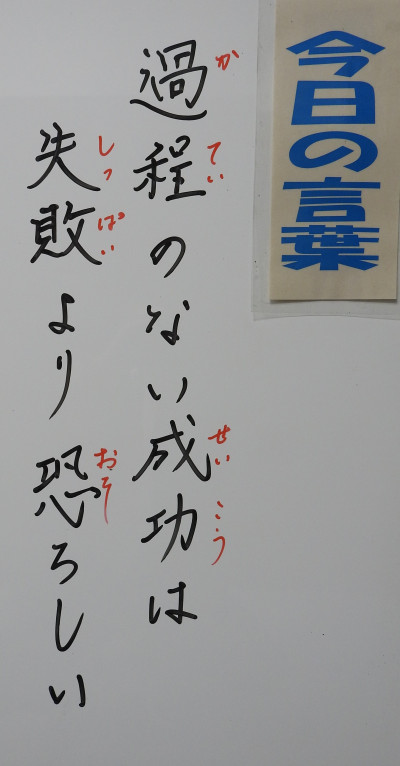 今日の言葉
過程のない成功は
かてい
せいこう
失敗より恐ろしい
しっぱい
おそ